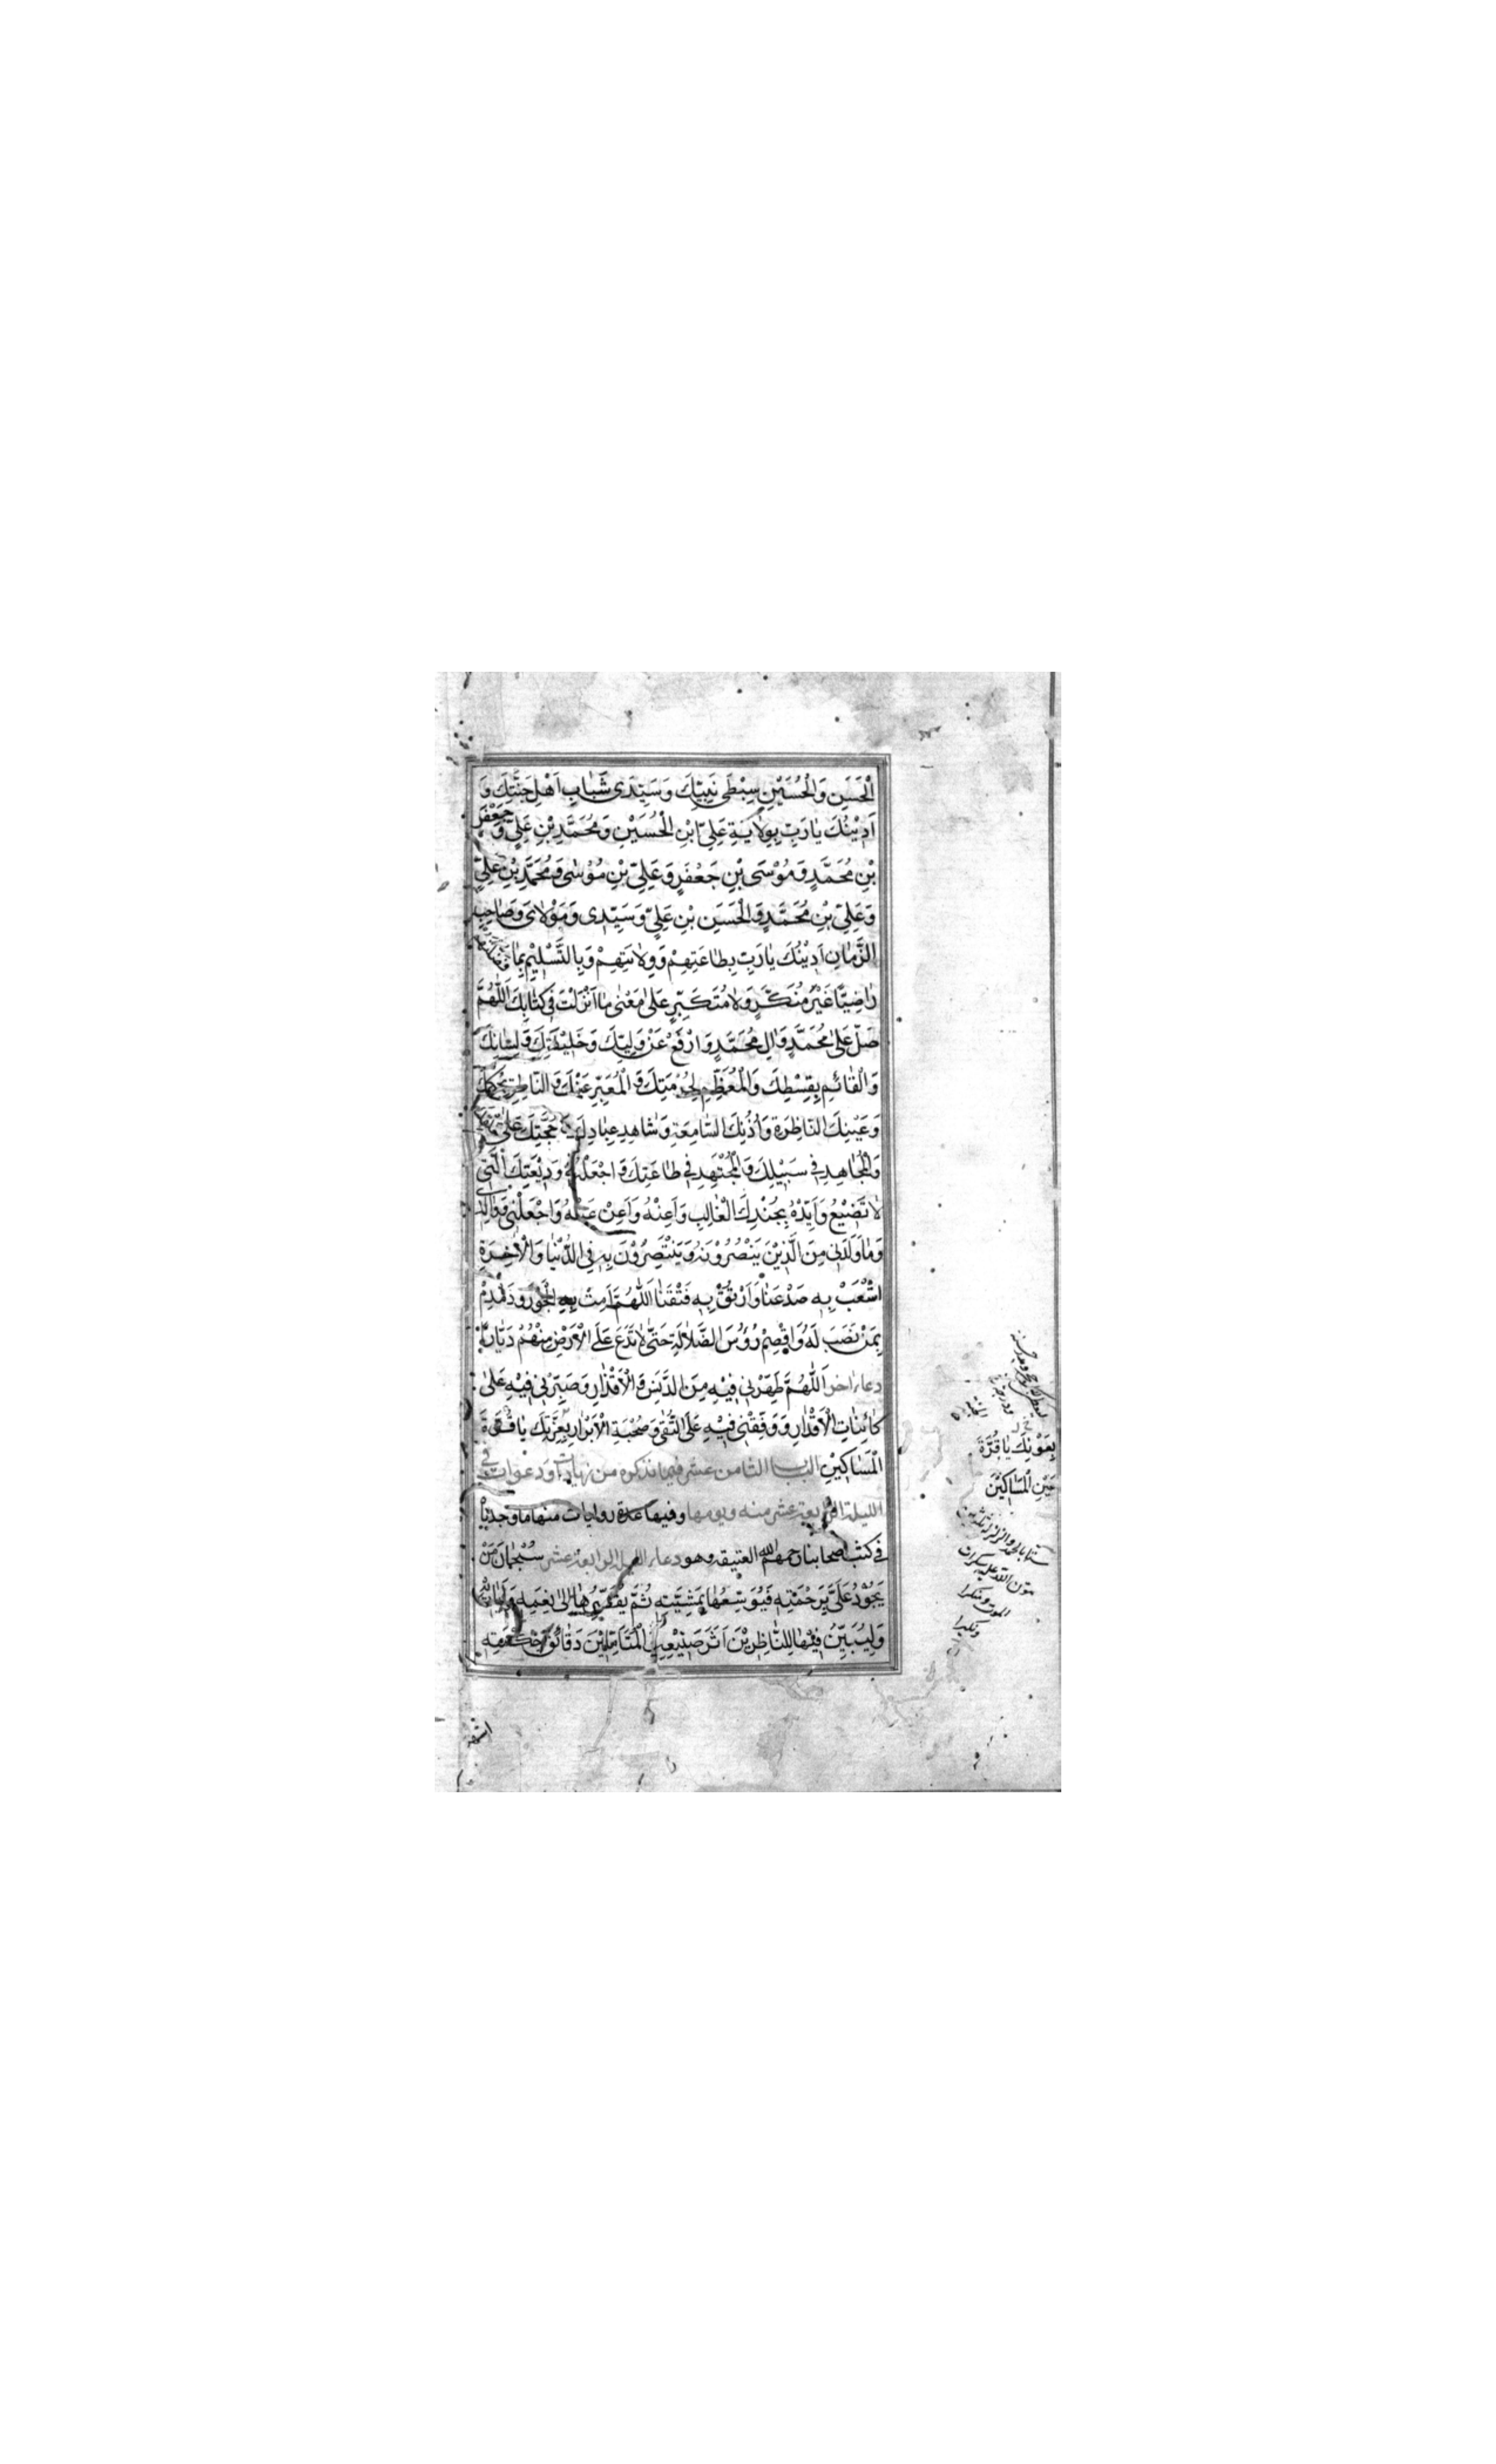 الْحَسَنِ وَالْحُسَيْنِ سِبْطَىْ نَبِيِّكَ وَسَيِّدَىْ شَبَابِ اَهْلِ جَنَّتِكَ وَ
اَدِيْنُكَ يٰا رَبِّ بِوِلٰايَةِ عَلِىِّ ابْنِ الْحُسَيْنِ وَمُحَمَّدِ بْنِ عَلِىٍّ وَ جَعْفَرِ
بْنِ مُحَمَّدٍ وَمُوْسَى بْنِ جَعْفَرٍ وَعَلِىِّ بْنِ مُوْسٰى وَمُحَمَّدِ بْنِ عَلِىٍّ
وَعَلِىِّ بْنِ مُحَمَّدٍ وَالْحَسَنِ بْنِ عَلِىٍّ وَسَيِّدِى وَمَوْلٰاىَ وَصٰاحِبِ
الزَّمٰانِ اَدِيْنُكَ يٰا رَبِّ بِطٰاعَتِهِمْ وَوِلٰايَتِهِمْ وَبِالتَّسْلِيْمِ بِمٰا فَضَّلْتَهُمْ
رٰاضِيًا غَيْرَ مُنْكِرٍ وَلٰا مُتَكَبِّرٍ عَلٰى مَعْنٰى مٰا اَنْزَلْتَ فِى كِتٰابِكَ اَللّٰهُمَّ
صَلِّ عَلٰى مُحَمَّدٍ وَاٰلِ مُحَمَّدٍ وَارْفَعْ عَنْ وَلِيِّكَ وَخَلِيْفَتِكَ وَلِسٰانِكَ
وَالْقٰائِمِ بِقِسْطِكَ وَالْمُعَظِّمِ لِحُرْمَتِكَ وَالْمُعَبِّرِ عَنْكَ وَالنّٰاطِقِ بِحُكْمِكَ
وَعَيْنِكَ النّٰاظِرَةِ وَاُذُنِكَ السّٰامِعَةِ وَشٰاهِدِ عِبٰادِكَ حُجَّتِكَ عَلٰى
وَالْمُجٰاهِدِ فِى سَبِيْلِكَ وَالْمُجْتَهِدِ فِى طٰاعَتِكَ وَاجْعَلْهُ فِى وَدِيْعَتِكَ الَّتِى
لٰا تَضِيْعُ وَاَيِّدْهُ بِجُنْدِكَ الْغٰالِبِ وَاَعِنْهُ وَاَعِنْ عَنْهُ وَاجْعَلْنِى وَوٰالِدَىَّ
وَمٰا وَلَدٰنِى مِنَ الَّذِيْنَ يَنْصُرُوْنَهُ وَيَنْتَصِرُوْنَ بِهِ فِى الدُّنْيٰا وَالْاٰخِرَةِ
اشْعَبْ بِهِ صَدْعَنٰا وَارْتُقْ بِهِ فَتْقَنٰا اَللّٰهُمَّ اَمِتْ بِهِ الْجَوْرَ وَدَمْدِمْ
بِمَنْ نَصَبَ لَهُ وَاقْصِمْ رُؤُسَ الضَّلٰالَةِ حَتّٰى لٰا تَدَعَ عَلَى الْاَرْضِ مِنْهُمْ دَيّٰارًا
دعاء اخر اَللّٰهُمَّ طَهِّرْنِى فِيْهِ مِنَ الدَّنَسِ وَالْاَقْذٰارِ وَصَبِّرْنِى فِيْهِ عَلٰى
كٰائِنٰاتِ الْاَقْدٰارِ وَوَفِّقْنِى فِيْهِ عَلَى التُّقٰى وَصُحْبَةِ الْاَبْرٰارِ بِعِزَّتِكَ يٰا قُوَّةَ
الْمَسٰاكِيْنِ الباب الثامن عشر فيما نذكره من زيادات ودعوات فى
الليلة الرابعة عشر منه ويومها وفيها عدة روايات منها ما وجدناه
فى كتب اصحابنا رحمهم الله العتيقة وهو دعاء الليلة الرابعة عشر سُبْحٰانَ مَنْ
يَجُوْدُ عَلَىَّ بِرَحْمَتِهِ فَيُوَسِّعُهٰا بِمَشِيَّتِهِ ثُمَّ يُقَصِّرُهٰا اِلٰى نِعَمِهِ
وَلِيُبَيِّنَ فِيْهٰا لِلنّٰاظِرِيْنَ اَثَرَ صَنِيْعِهِ لِلْمُتَاَمِّلِيْنَ دَقٰائِقَ حِكْمَتِهِ
بِعَوْنِكَ يٰا قُرَّةَ
عَيْنِ الْمَسٰاكِيْنَ